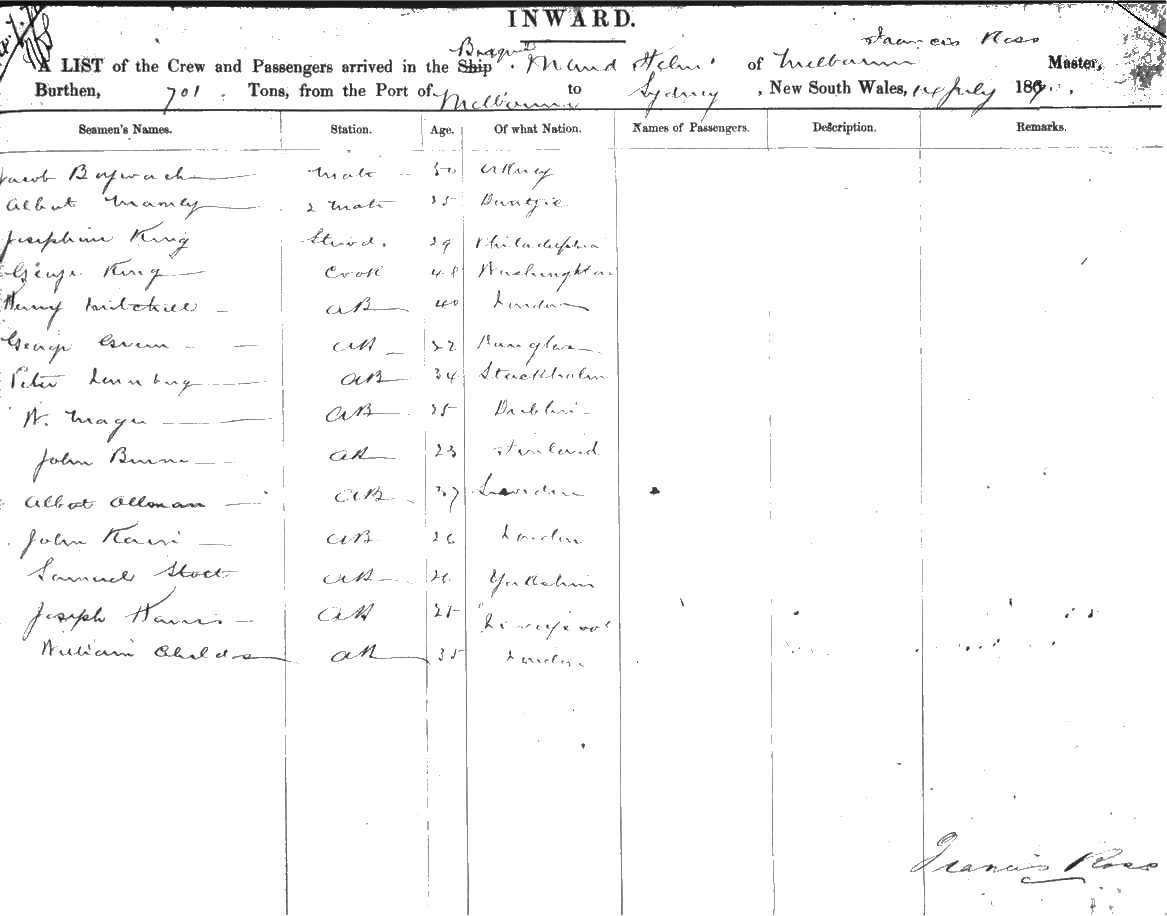 INWARD.
Francis Ross
Barque
A LIST of the Crew and Passengers arrived in the Ship "Maud Helen" of Melbourne Master,
Burthen, 701 Tons, from the Port of Melbourne to Sydney, New South Wales, 14 July 18
Seamen's Names. Station. Age. Of what Nation. Names of Passengers. Description. Remarks.
Jacob Mate 50
Albert Manly 2 Mate 25
Josephine King Stwd. 29 Philadelphia
George King Cook 48 Washington
Henry Mitchell AB 40 London
George Green AB 22
Peter AB 34 Stockholm
W. AB 25 Dublin
John Burns AB 23
Albert Allman AB 37 London
John AB 26 London
Samuel Stott AB 26 Yorkshire
Joseph Harris AB 25 Liverpool
William Childs AB 35 London
Francis Ross